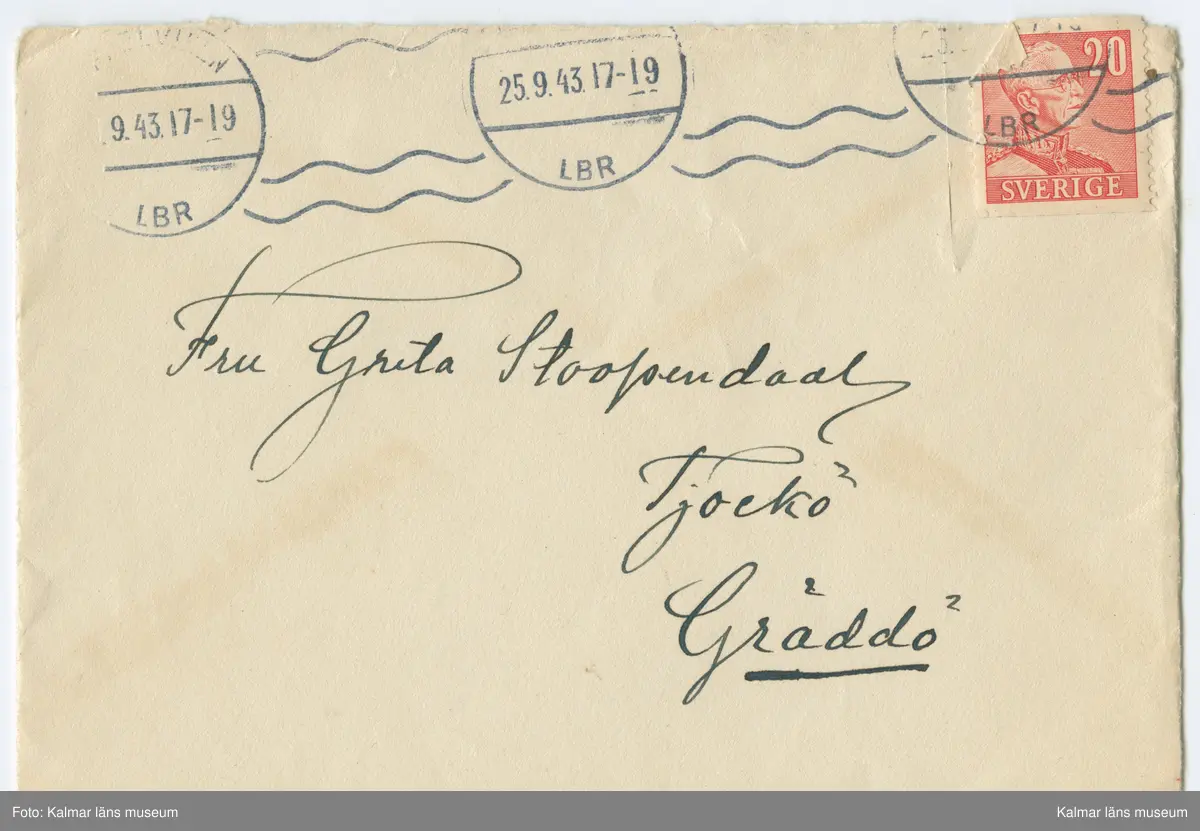 9.43.17-19
LBR
25.9.43.17-19
LBR
LBR
20
SVERIGE
Fru Greta Stoopendaal
Tjockö
Gräddö
Foto: Kalmar läns museum
Kalmar läns museum